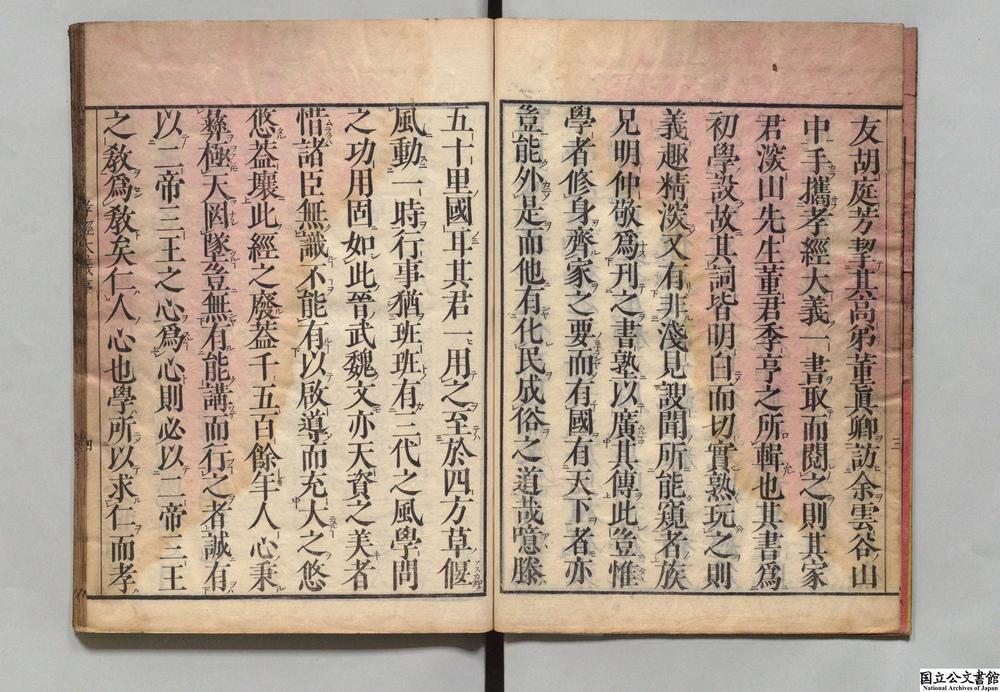 友胡庭芳挈其高弟董眞卿訪余雲谷山
中手攜孝經大義一書取而閱之則其家
君深山先生董君季亨之所輯也其書爲
初學設故其詞皆明白而切實熟玩之則
義趣精深又有非淺見謏聞所能窺者族
兄明仲敬爲刊之書塾以廣其傳此豈惟
學者修身齊家之要而有國有天下者亦
豈能外是而他有化民成俗之道哉噫滕
五十里國耳其君一用之至於四方草偃
風動一時行事猶班班有三代之風學問
之功用固如此晉武魏文亦天資之美者
惜諸臣無識不能有以啟導而充大之悠
悠葢壤此經之廢葢千五百餘年人心秉
彝極天罔墜豈無有能講而行之者誠有
以二帝三王之心爲心則必以二帝三王
之教爲教矣仁人心也學所以求仁而孝
三
四
國立公文書館
National Archives of Japan